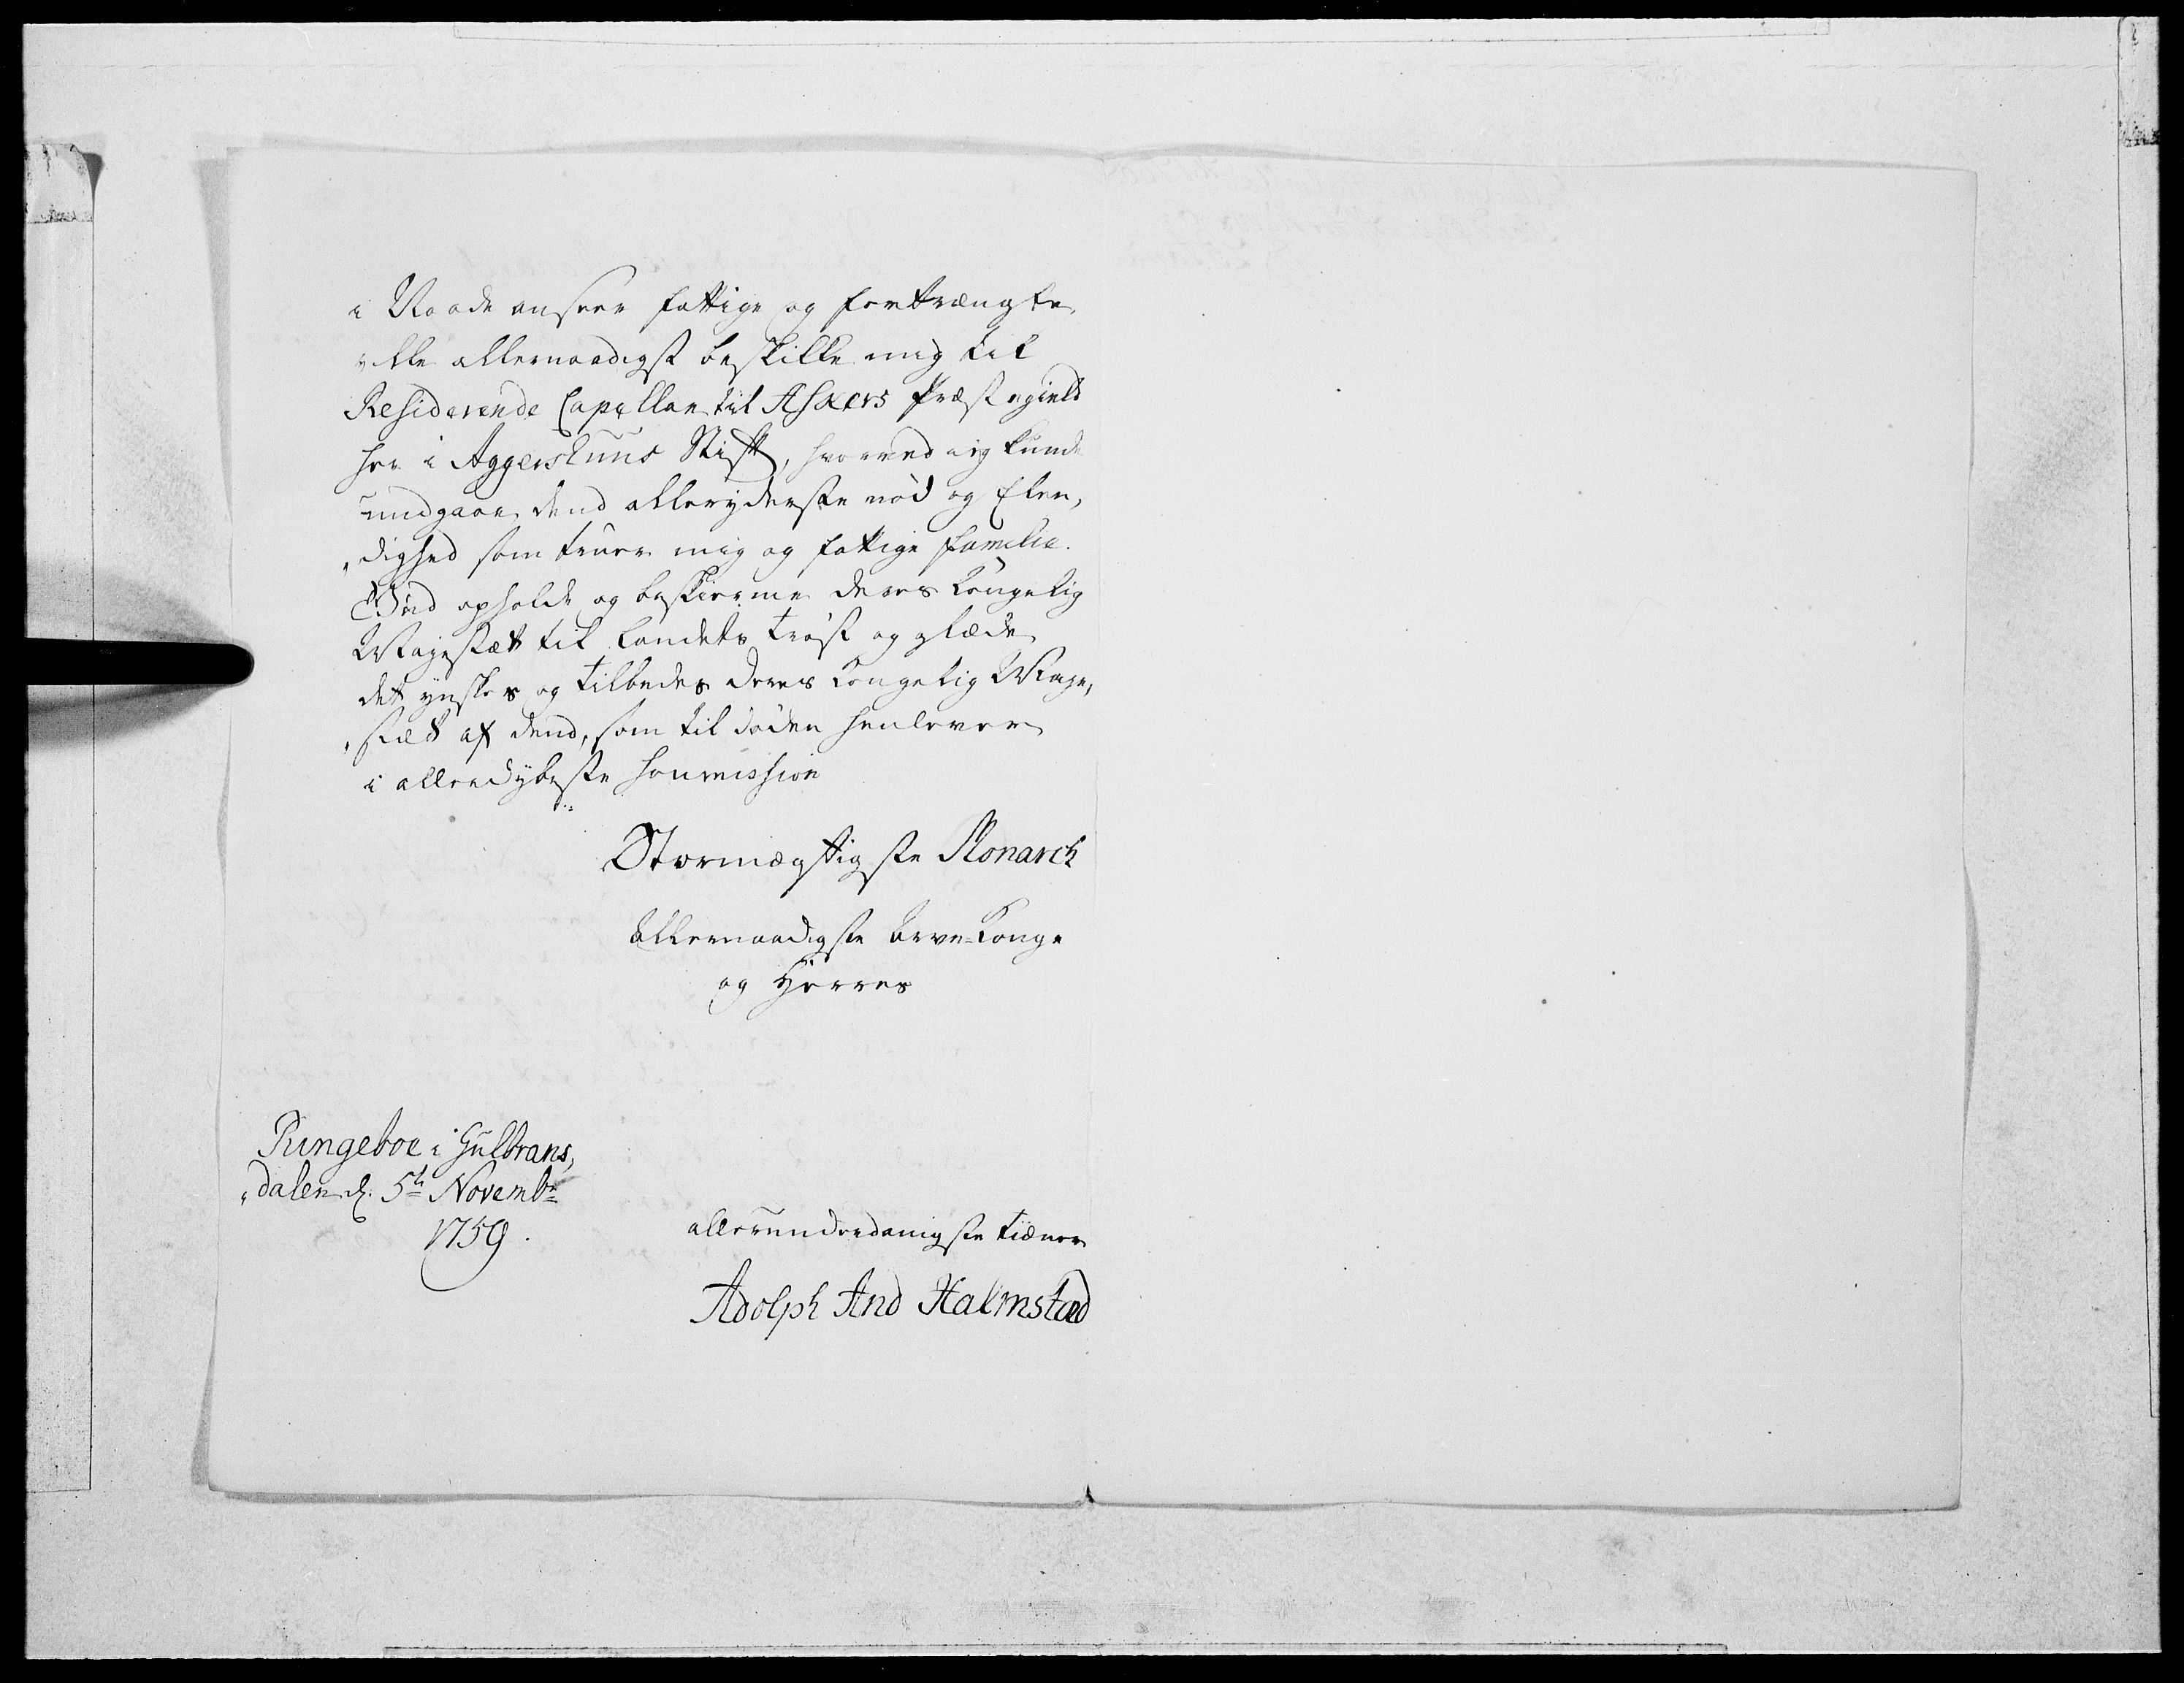 i Naade ansere fattige og fortrængte,
ville allernaadigst beskikke mig til
Residerende Capellan til Askers Præstegield
her i Aggershuus Stift, hvorved ieg kunde
undgaae dend alleryderste nød og Elen,
„dighed som truer mig og fattige familie.
Gud opholde og beskierme deres Kongelig
Mayestæt til Landets trøst og glæde
det ynskes og tilbedes deres Kongelig Maye,
„stæt af dend, som til døden henlever
i allerdybeste soumission
Stormægtigste Monarch
Allernaadigste Arve-Konge
og Herres
Ringeboe i Gulbrans,
„dalen d. 5te Novembr
1759.
allerunderdanigste tiæner
Adolph And Halmstad